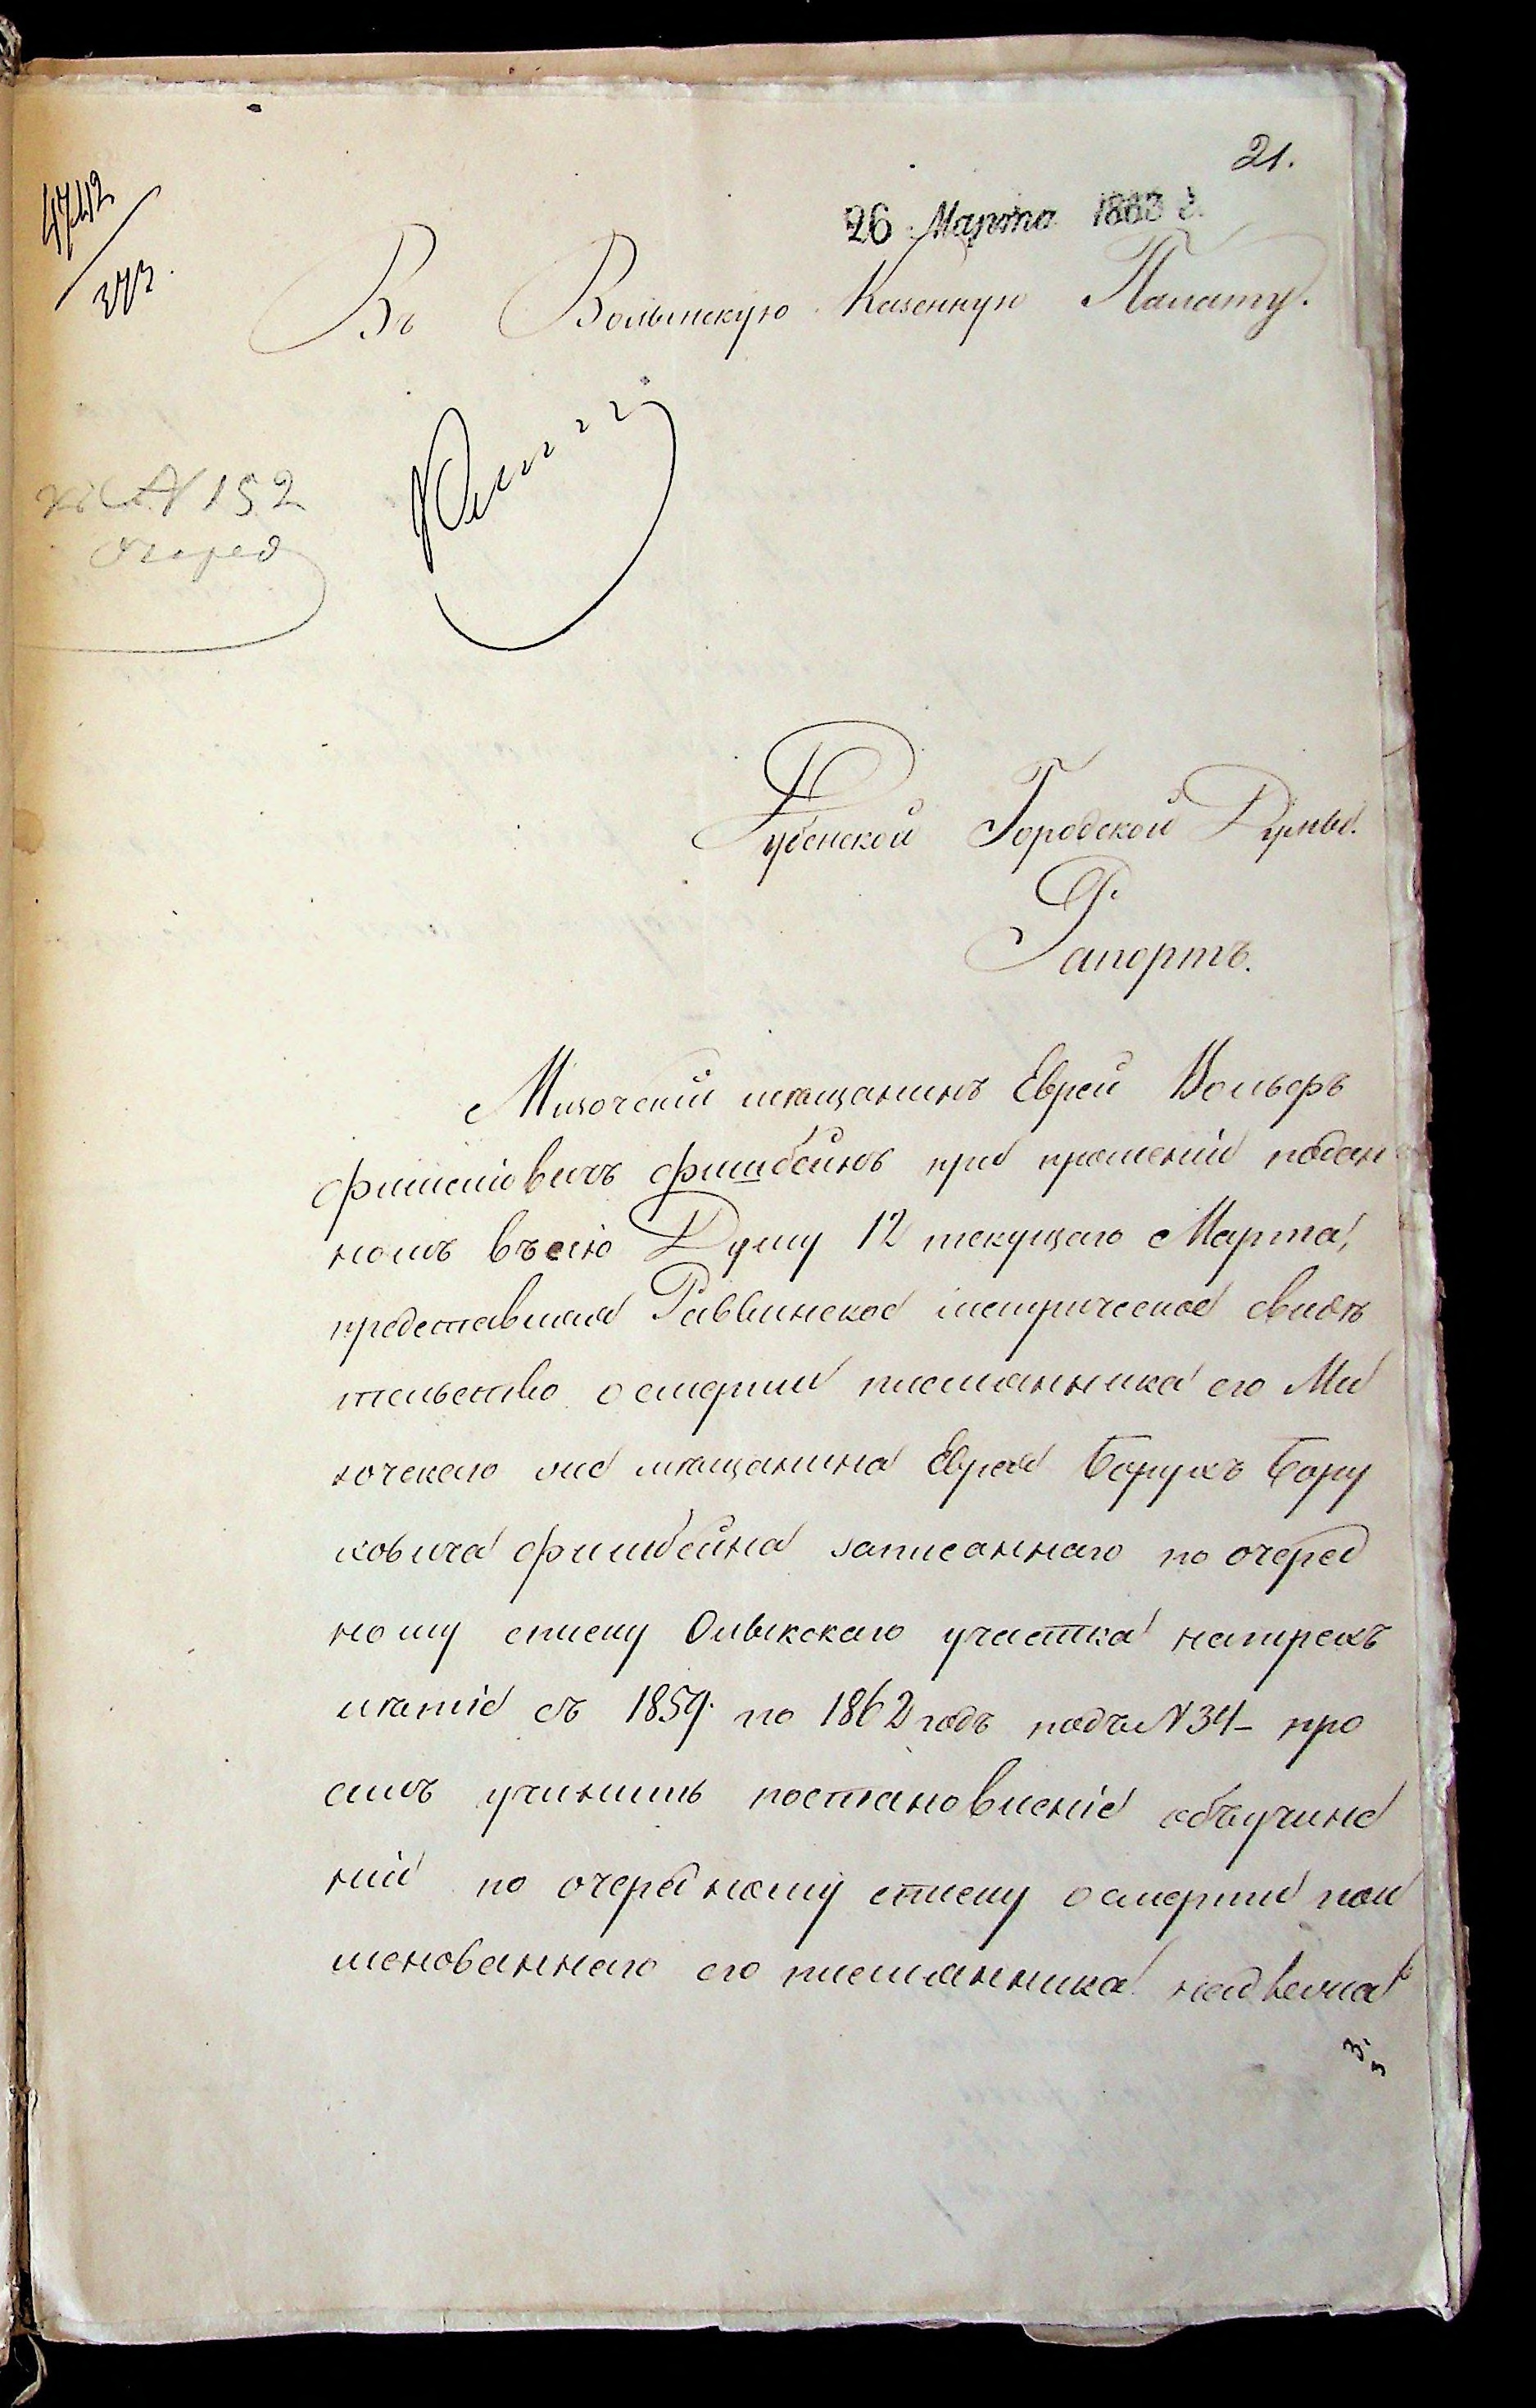 21.
4742
373.
26 Марта 1863 г.
Въ Волынскую Казенную Палату.
№ 152
очеред
Дубенской Городской Думы.
Рапортъ.
Мизочскій мещанинъ Еврей Вольфъ
Фишелiовичъ Фишбейнъ при прошеніи подан
номъ въ сію Думу 12 текущаго Марта,
представилъ Раввинское метрическое свидѣ
тельство о смерти племянника его Ми
зочскаго же мещанина Еврея Борухъ Бору
ховича Фишбейна записаннаго по очеред
ному списку Олыкскаго участка натрехъ
лѣтіе съ 1859. по 1862 годъ подъ N 34 – про
силъ учинить постановленіе объучине
ніи по очередному списку о смерти пои
менованнаго его племянника надлежа